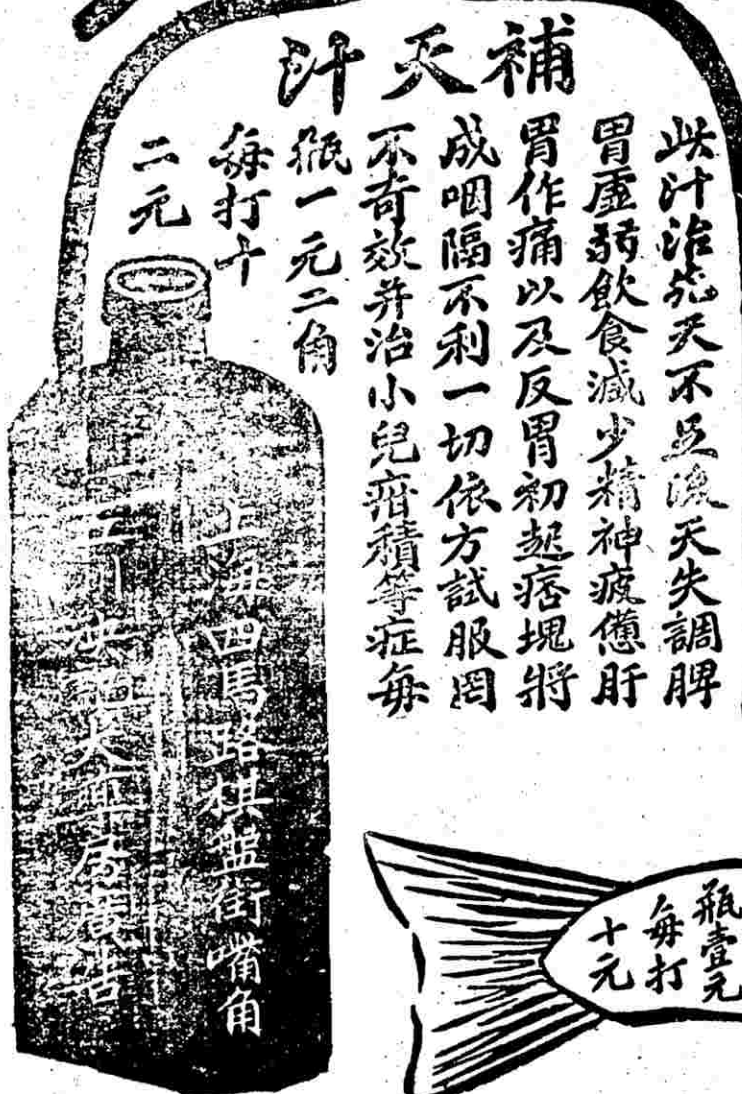 補天汁
此汁治先天不足後天失調脾
胃虛弱飲食減少精神疲憊肝
胃作痛以及反胃初起痞塊將
成咽隔不利一切依方試服罔
不奇效并治小兒疳積等症每
瓶一元二角
每打十
二元
上海四馬路棋盤街嘴角
五洲大藥房廣告
瓶壹元
每打
十元